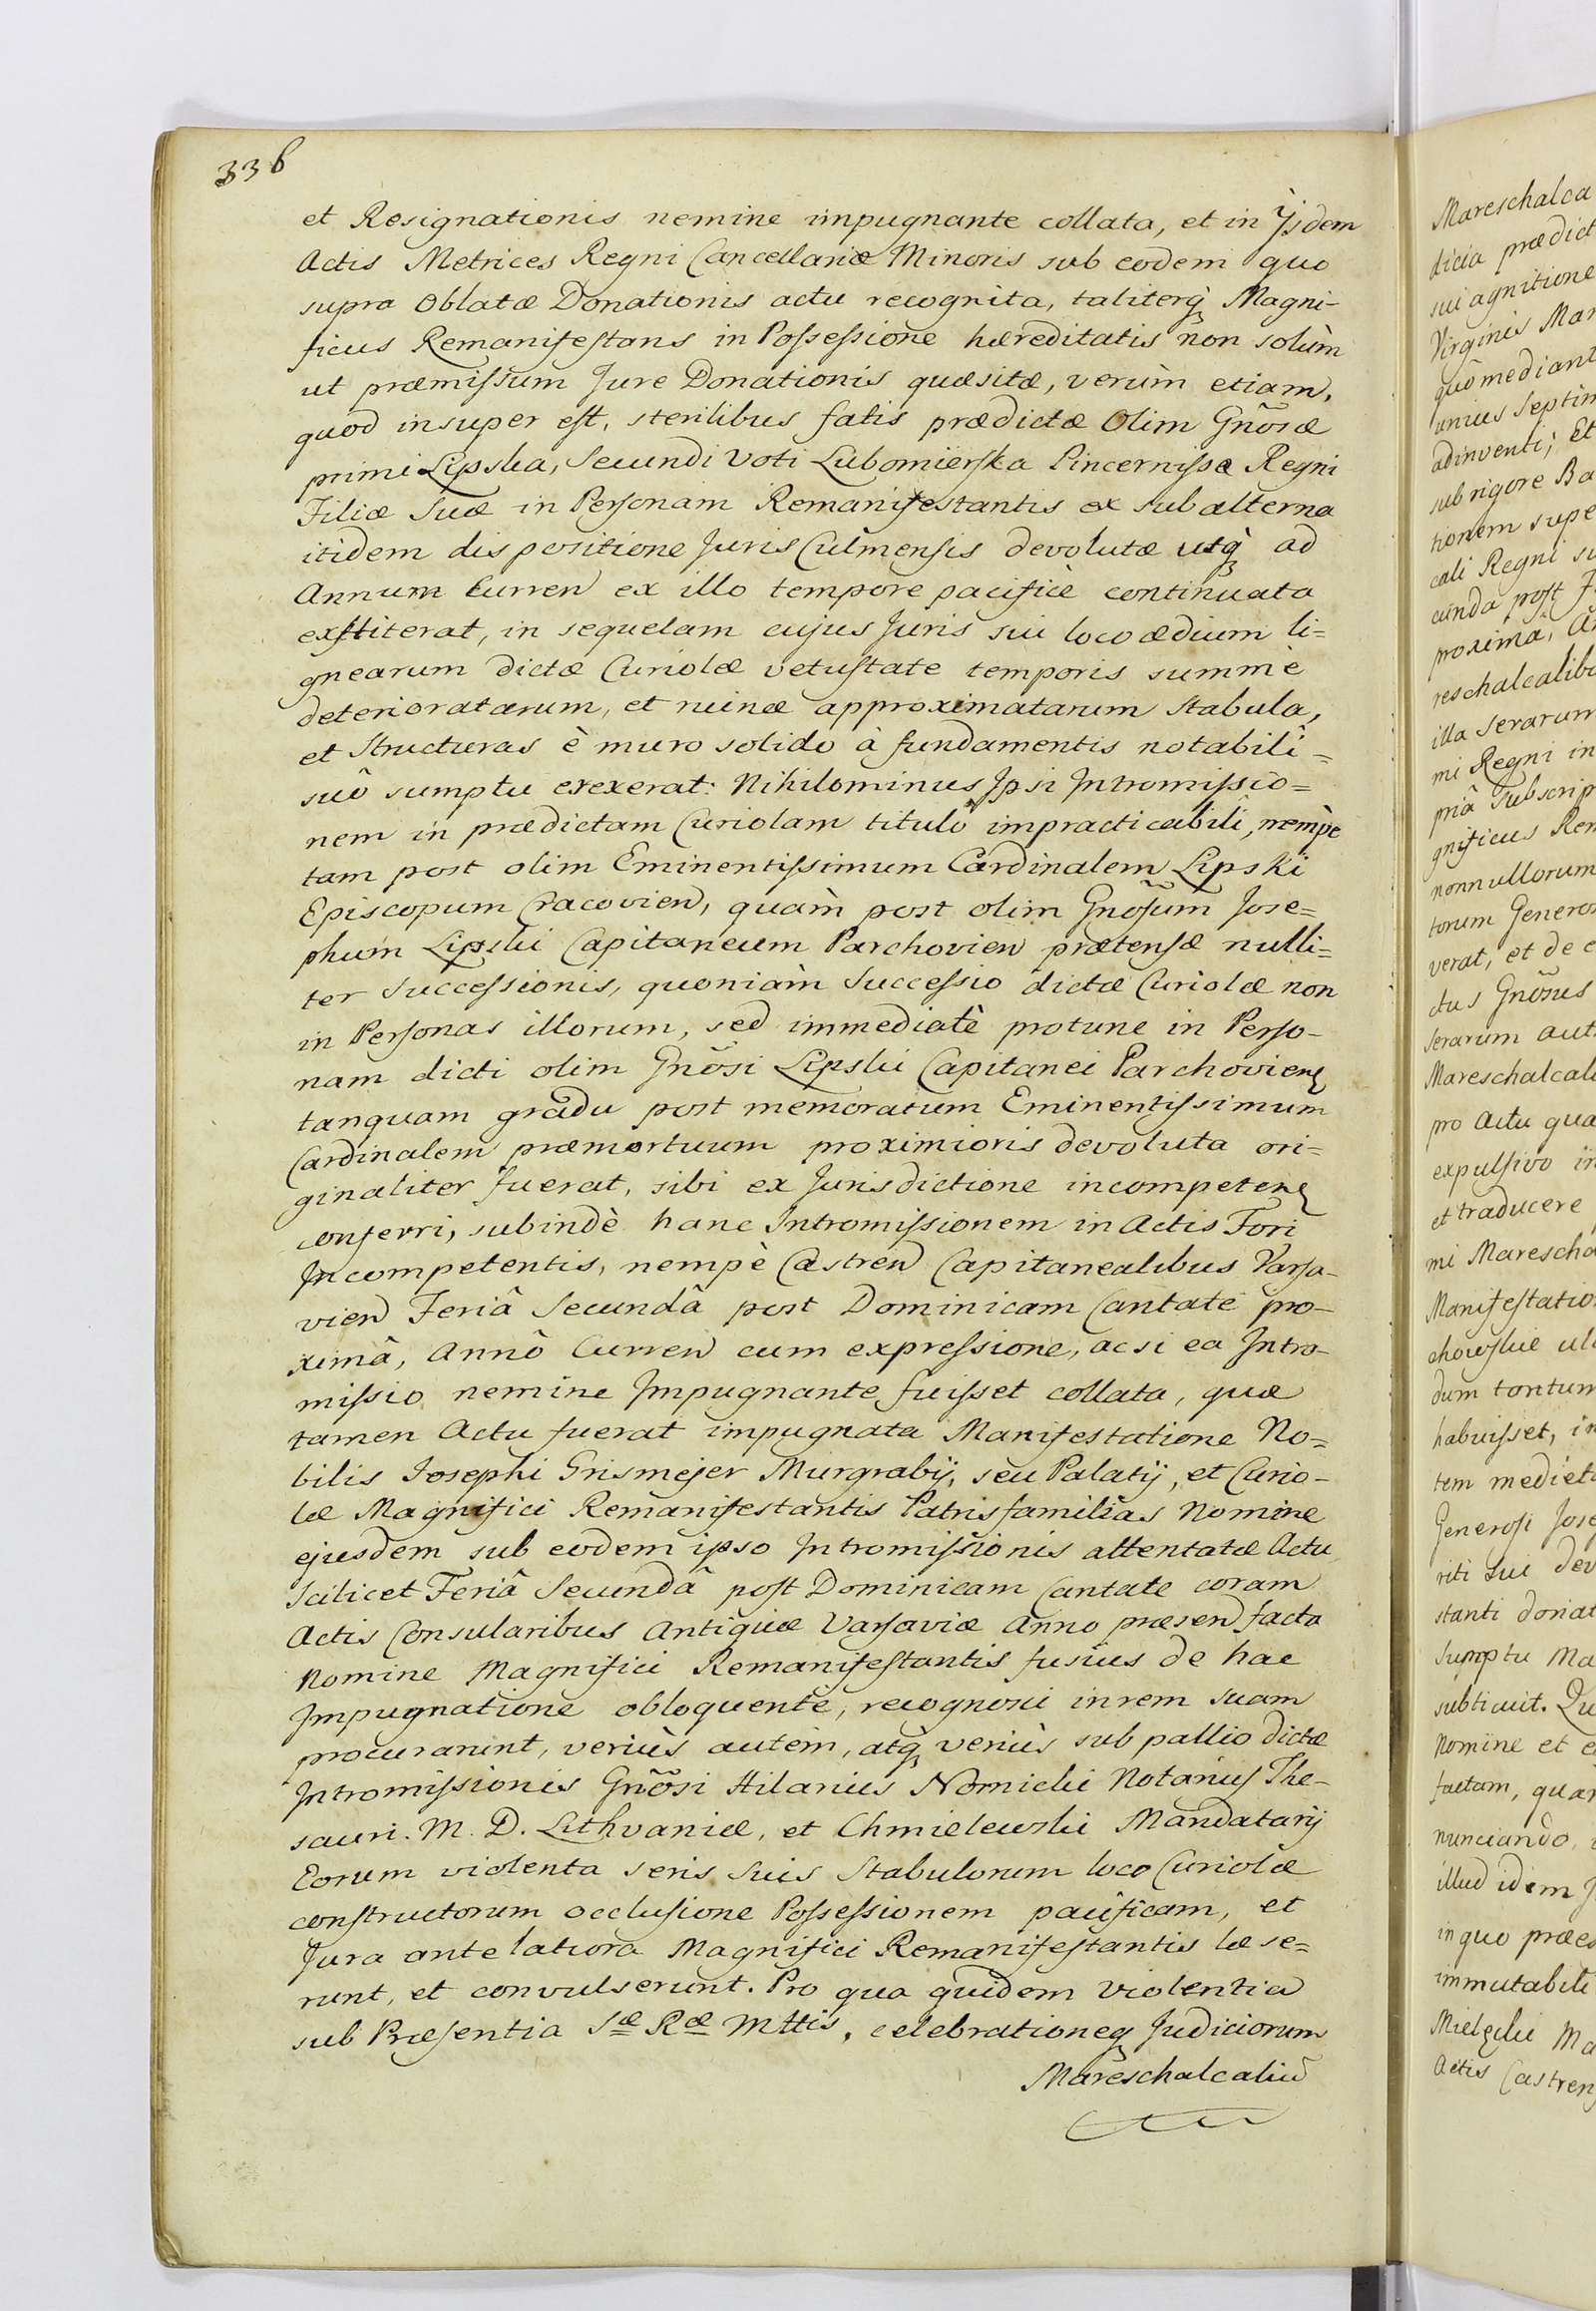 336
et Resignationis nemine impugnante collata, et in Ijsdem
Actis Metrices Regni Cancellariæ Minoris sub eodem quo
supra Oblatæ Donationis actu recognita, taliterq̀ Magni-
ficus Remanifestans in Possessione hæreditatis non solùm
ut præmissum Jure Donationis quæsitæ, verùm etiam,
quod insuper est, sterilibus fatis prædictæ Olim Gñosæ
primi Lipska, Secundi Voti Lubomierska Pincernissæ Regni
Filiæ Suæ in Personam Remanifestantis ex subalterna
itidem dispositione Juris Culmensis devolutæ usq̀ ad
Annum Curren ex illo tempore pacificè continuata
exstiterat, in sequelam cujus Juris sui loco ædium li=
gnearum dictæ Curiolæ vetustate temporis summè
deterioratarum, et ruinæ approximatarum Stabula,
et Structuras è muro solido à fundamentis notabili=
suô sumptu erexerat: Nihilominus Ipsi Intromissio=
nem in prædictam Curiolam titulô impracticabili, nempè
tam post olim Eminentissimum Cardinalem Lipski
Episcopum Cracovien, quàm post olim Gñosum Jose=
phum Lipski Capitaneum Parchovien prætensæ nulli=
ter Successionis, quoniàm Successio dictæ Curiolæ non
in Personas illorum, sed immediatè protunc in Perso-
nam dicti olim Gñosi Lipski Capitanei Parchovien
tanquam gradu post memoratum Eminentissimum
Cardinalem præmortuum proximioris devoluta ori=
ginaliter fuerat, sibi ex Jurisdictione incompeten
conferri, subindè hanc Intromissionem in Actis Fori
Incompetentis, nempè Castren Capitanealibus Varsa-
vien Feriâ Secundâ post Dominicam Cantate pro-
ximâ, Annô Curren cum expressione, ac si ea Intro-
missio nemine Impugnante fuisset collata, quæ
tamen Actu fuerat impugnata Manifestatione No=
bilis Josephi Grismejer Murgrabij, seu Palatij, et Curio-
læ Magnifici Remanifestantis Patrisfamilias Nomine
ejusdem sub eodem ipso Intromissionis attentatæ Actu
Scilicet Feriâ Secundâ post Dominicam Cantate coram
Actis Consularibus Antiquæ Varsaviæ Anno præsen facta
Nomine Magnifici Remanifestantis fusius de hac
Impugnatione obloquente, recognosci in rem suam
procurarunt, veriùs autèm, atq̀ veriùs sub pallio dictæ
Intromissionis Gñosi Hilarius Nornicki Notarius The-
sauri. M. D. Lithvaniæ, et Chmielewski Mandatarij
Eorum violenta seris suis Stabulorum loco Curiolæ
constructorum occlusione Possessionem pacificam, et
Jura antelatiora Magnifici Remanifestantis læse=
runt, et convulserunt. Pro qua quidem violentia
sub Præsentia Sæ Ræ Mttis, celebrationeq Judiciorum
Mareschalcaliũ
Mareschalca
dicia prædict
sui agnitione
Virginis Mar
quo mediant
unius Septim
adinventi; Et
sub rigore Ba
tionem supe
cali Regni su
cunda post F
proxima, A
reschalcalib
illa Serarum
mi Regni in
priâ Subscrip
gnificus Rem
nonnullorum
torum Generos
verat, et de e
ctus Gñosus
Serarum aut
Mareschalcali
pro Actu qua
expulsivo in
et traducere
mi Marescha
Manifestatio
chowskie ul
dum tantum
habuisset, in
tem mediet
Generosi Jose
riti sui dev
stanti donat
Sumptu Ma
subticuit. Qu
Nomine et e
factam, quar
nunciando,
illud idem J
in quo præe
immutabili
Mielzcki Ma
Actis Castren